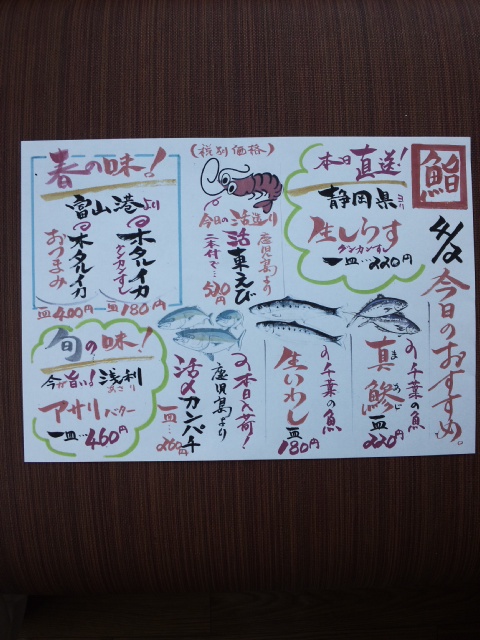 鮨
今日のおすすめ。
本日直送!
静岡県より
生しらす
グンカンすし
一皿…220円
の千葉の魚
真鯵
まあじ
一皿
220円
の千葉の魚
生いわし
一皿
180円
(税別価格)
今日の活造り
鹿児島より
活車えび
二本付で…
520円
の本日入荷!
鹿児島より
活〆カンパチ
一皿…
260円
春の味!
富山港より
ホタルイカ
グンカンすし
一皿180円
ホタルイカ
おつまみ
一皿400円
旬の味!
今が旨い!浅利
あさり
アサリバター
一皿…460円